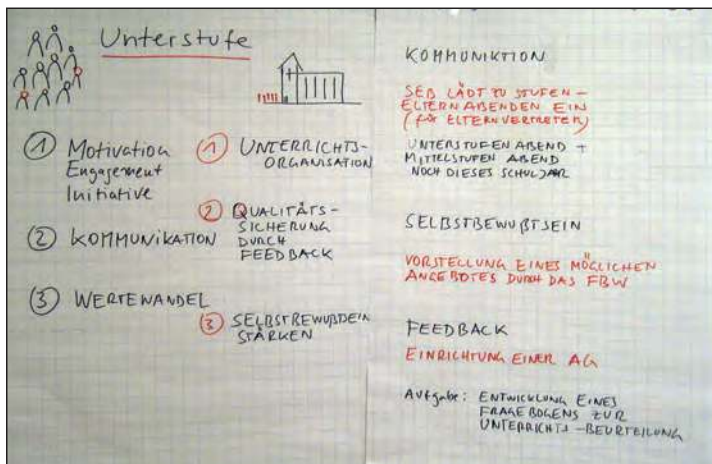 Unterstufe
① Motivation
Engagement
Initiative
② KOMMUNIKATION
③ WERTEWANDEL
① UNTERRICHTS-
ORGANISATION
② QUALITÄTS-
SICHERUNG
DURCH
FEEDBACK
③ SELBSTBEWUßTSEIN
STÄRKEN
KOMMUNIKTION
SEB LÄDT ZU STUFEN-
ELTERNABENDEN EIN
(für ELTERNVERTRETER)
UNTERSTUFENABEND +
MITTELSTUFEN ABEND
NOCH DIESES SCHULJAR
SELBSTBEWUßTSEIN
VORSTELLUNG EINES MÖGLICHEN
ANGEBOTES DURCH DAS FBW
FEEDBACK
EINRICHTUNG EINER AG
Aufgabe: ENTWICKLUNG EINES
FRAGEBOGENS ZUR
UNTERRICHTS-BEURTEILUNG